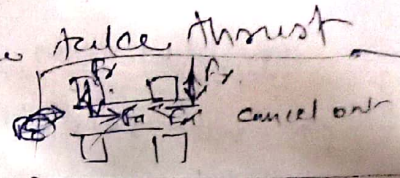 take thrust
Fr Fr
Fa Fa cancel out